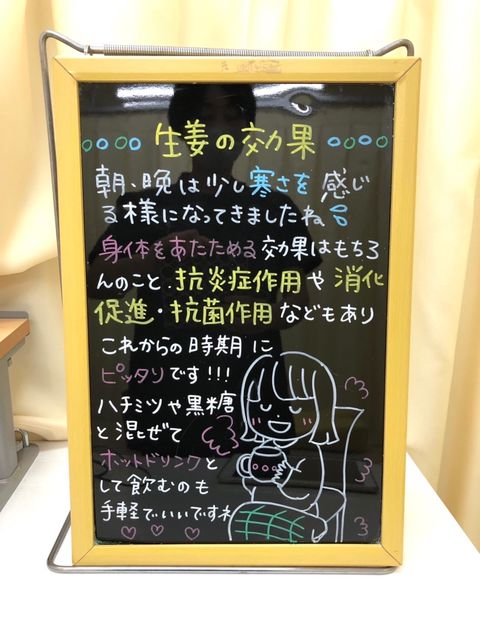 生姜の効果
朝、晩は少し寒さを感じ
る様になってきましたね
身体をあたためる効果はもちろ
んのこと、抗炎症作用や消化
促進・抗菌作用などもあり
これからの時期に
ピッタリです!!!
ハチミツや黒糖
と混ぜて
ホットドリンクと
して飲むのも
手軽でいいですネ